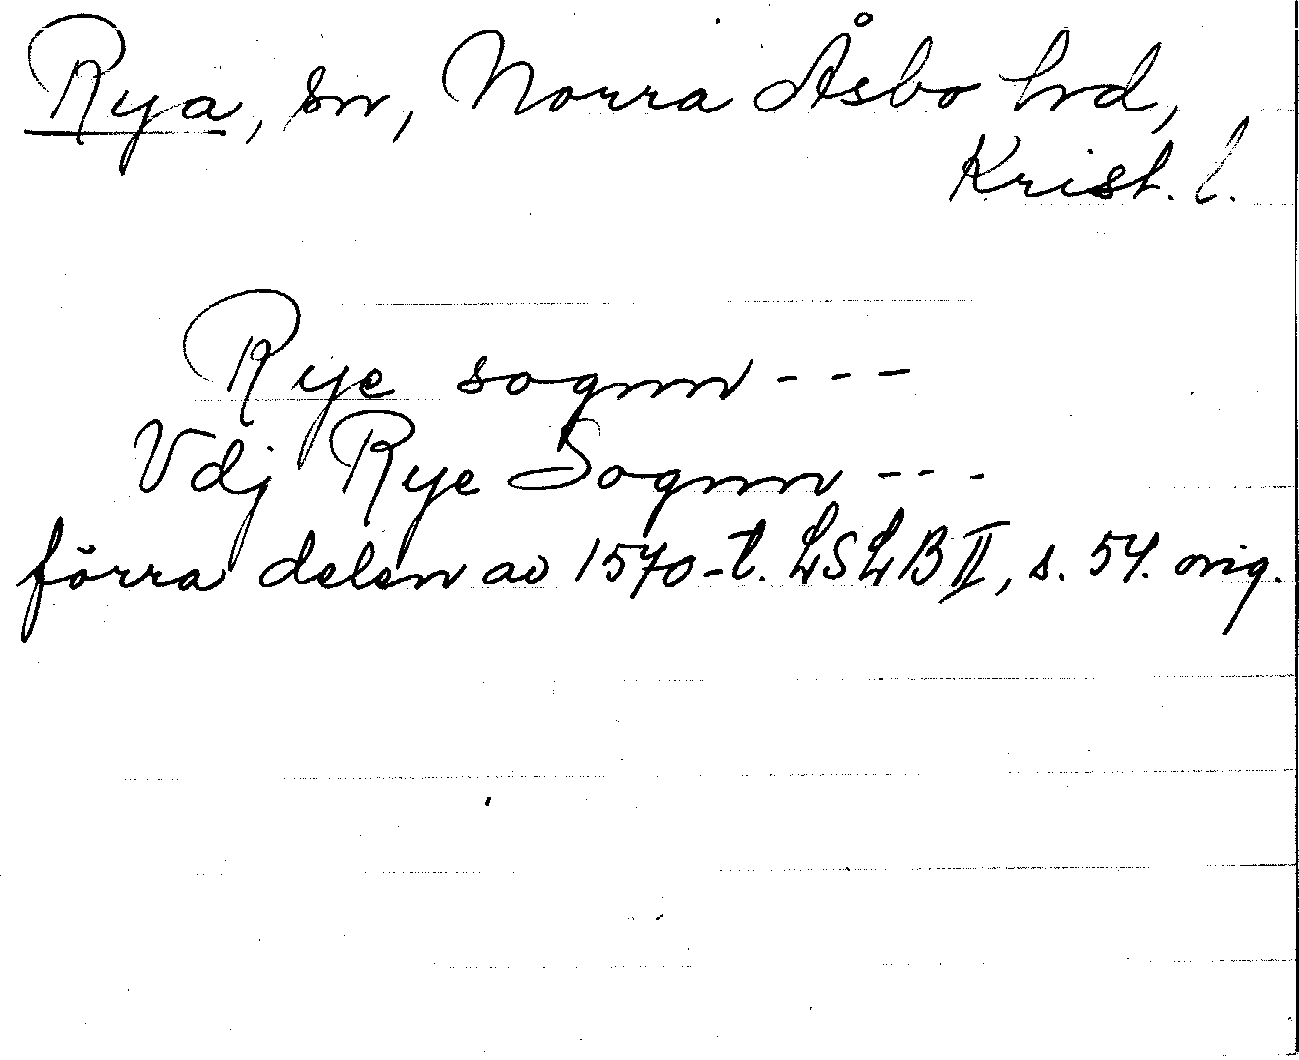 Rya, sn, Norra Åsbo hrd,
Krist. l.
Rye sognn - - -
Vdj Rye Sognn - - -
förra delen av 1570-t. LSLB II, s. 54. orig.